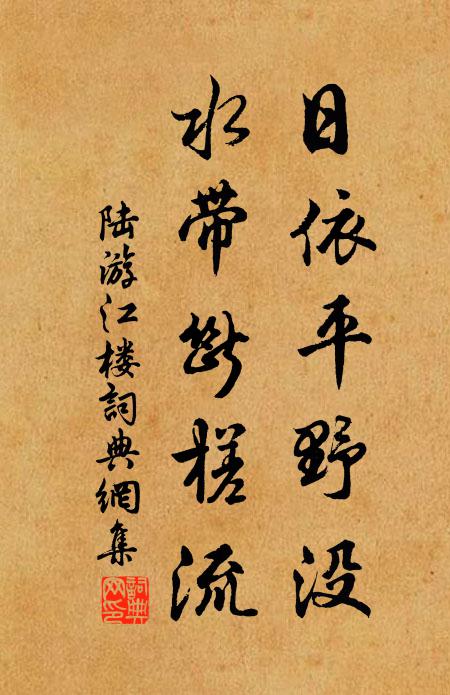 日依平野没
水带断槎流
陆游江楼詞典網集
詞典网印